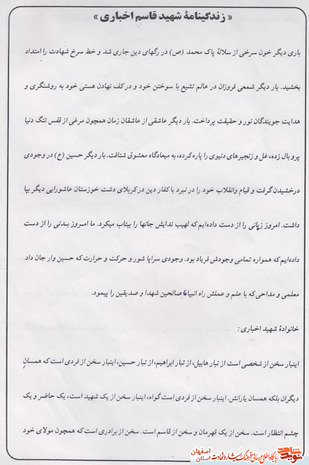 « زندگینامهٔ شهید قاسم اخباری »
باری دیگر خون سرخی از سلالهٔ پاک محمد (ص) در رگهای دین جاری شد و خط سرخ شهادت را امتداد
بخشید. بار دیگر شمعی فروزان در عالم تشیع با سوختن خود و در کف نهادن هستی خود به روشنگری و
هدایت جویندگان نور و حقیقت پرداخت. بار دیگر عاشقی از عاشقان زمان همچون مرغی از قفس تنگ دنیا
پر و بال زده، غل و زنجیرهای دنیوی را پاره کرده، به میعادگاه معشوق شتافت. بار دیگر حسین (ع) در وجودی
درخشیدن گرفت و قیام وانقلاب خود را در نبرد با کفار دین در کربلای دشت خوزستان عاشورایی دیگر بپا
داشت. امروز زبانی را از دست داده‌ایم که لهیب ندایش جانها را بیتاب میکرد. ما امروز بدنی را از دست
داده‌ایم که همواره تمامی وجودش فریاد بود. وجودی سراپا شور و حرکت و حرارت که حسین وار جان داد.
معلمی و مداحی که با علم و عملش راه انبیاء صالحین شهدا و صدیقین را پیمود.
خانوادهٔ شهید اخباری :
اینبار سخن از شخصی است از تبار هابیل، از تبار ابراهیم، از تبار حسین، اینبار سخن از فردی است که همسان
دیگران بلکه همسان یارانش. اینبار سخن از فردی است گواه، اینبار سخن از یک شهید است، یک حاضر و یک
چشم انتظار است. سخن از یک قهرمان و سخن از قاسم است. سخن از برادری است که همچون مولای خود
اصفهان